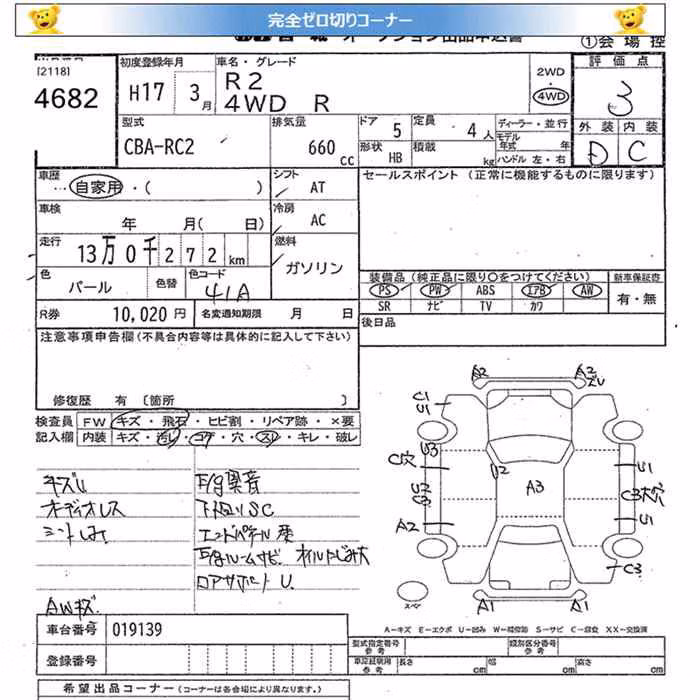 完全ゼロ切りコーナー
①会 場 控
[2118]
4682
初度登録年月
H17 3月
車名・グレード
R2
4WD R
2WD
4WD
評 価 点
3
外 装 内 装
D C
型式
CBA-RC2
排気量
660 cc
ドア 5
定員 4人
形状 HB
積載 kg
ディーラー・並行
モデル年式 年
ハンドル 左・右
車歴
自家用・( )
シフト
AT
セールスポイント (正常に機能するものに限ります)
車検
年 月( 日)
冷房
AC
走行
13万0千272km
燃料
ガソリン
色
パール
色替
色コード
41A
装備品 (純正品に限り○をつけてください)
PS PW ABS エアB AW
SR ナビ TV カワ
新車保証書
有・無
R券 10,020 円
名変通知期限 月 日
後日品
注意事項申告欄(不具合内容等は具体的に記入して下さい)
修復歴 有 〔箇所 〕
検査員
記入欄
FW キズ・飛石・ヒビ割・リペア跡・×要
内装 キズ・汚レ・コゲ・穴・スレ・キレ・破レ
キズU
オーディオレス
シートしみ
AWキズ
E/g異音
下回りSC
エンドパネル歪
E/gルームサビ オイルにじみ大
ロアサポートU
A2 A2
C1
U1
U3
C穴
U2
C3
A2
U2
A3
U1
C3大穴
S1
C3
A1 A1
スペア
A-キズ E-エクボ U-凹み W-補修跡 S-サビ C-腐食 XX-交換済
車台番号 019139
登録番号
型式指定番号
参考
類別区分番号
参考
車庫証明用
参考
長さ cm
幅 cm
高さ cm
希望出品コーナー (コーナーは各会場により異なります。)